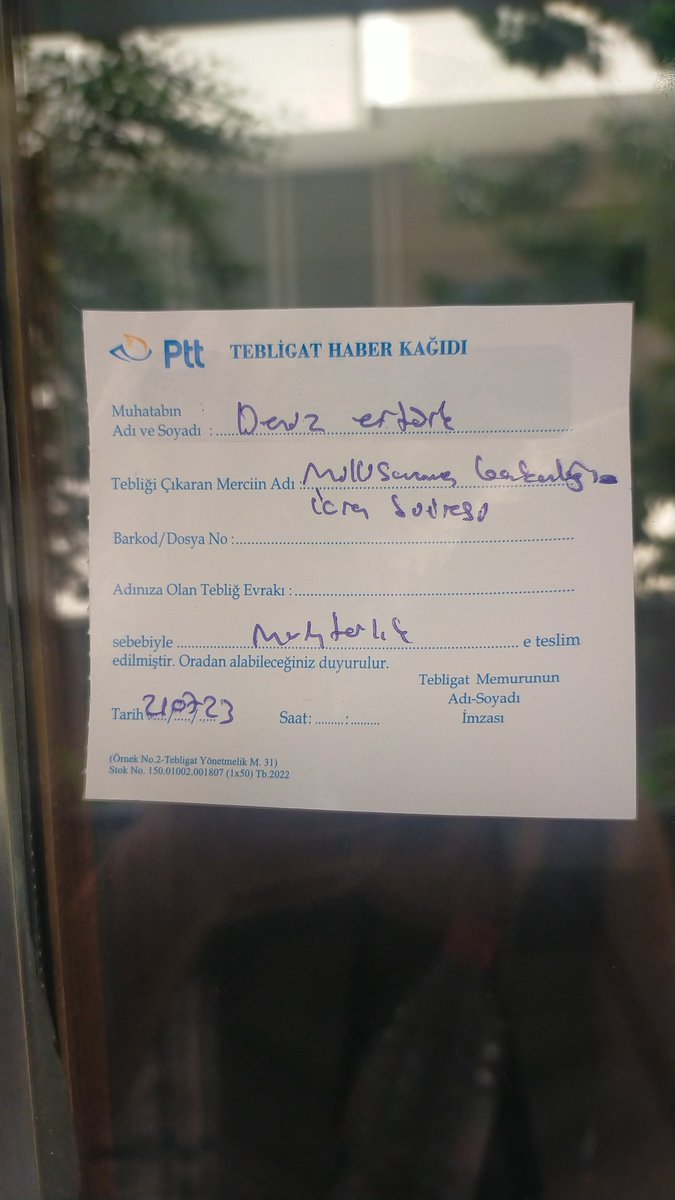 Ptt TEBLİGAT HABER KAĞIDI
Muhatabın
Adı ve Soyadı : Deniz ertürk
Tebliği Çıkaran Merciin Adı : Milli Savunma bakanlığı
icra Dairesi
Barkod/Dosya No :
Adınıza Olan Tebliğ Evrakı :
sebebiyle Muhtarlık e teslim
edilmiştir. Oradan alabileceğiniz duyurulur.
Tebligat Memurunun
Adı-Soyadı
İmzası
Tarih 21/07/23 Saat: ........:........
(Örnek No.2-Tebligat Yönetmelik M. 31)
Stok No. 150.01002.001807 (1x50) Tb.2022